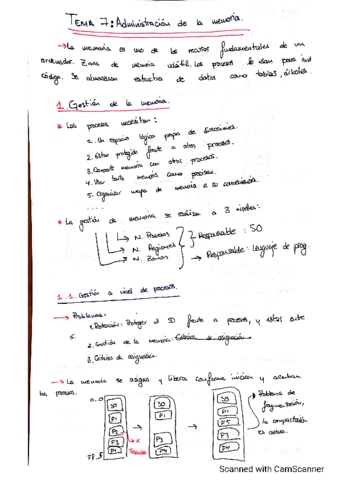 TEMA 7: Administración de la memoria.
→ La memoria es uno de los recursos fundamentales de un
ordenador. Zona de memoria volátil. Los procesos lo usan para
código. Se almacenan estructura de datos como tablas, árboles.
1. Gestión de la memoria.
* Los procesos necesitan:
1. Un espacio lógico propio de direcciones.
2. Estar protegido frente a otros procesos.
3. Compartir memoria con otros procesos.
4. Usar tanta memoria como precisen.
5. Organizar mapa de memoria a su conveniencia.
.....
* La gestión de memoria se realiza a 3 niveles:
→ N. Procesos
→ N. Regiones
→ N. Zonas
Responsable: SO
→ Responsable: Lenguaje de prog.
1.1. Gestión a nivel de procesos.
→ Problemas:
1. Protección: Proteger el SO frente a procesos, y estos entre
s.
2. Gestión de la memoria: Criterios de asignación
3. Criterios de asignación.
→ La memoria se asigna y libera conforme inician y acaban
los procesos.
0..0
SO
P1
P2
P3
P4
FF..F
x
Termina
→
SO
P1
P3
P4
→
SO
P1
P5
P3
P4
→ Problema de
fragmentación,
la compactación
es costosa.
Scanned with CamScanner